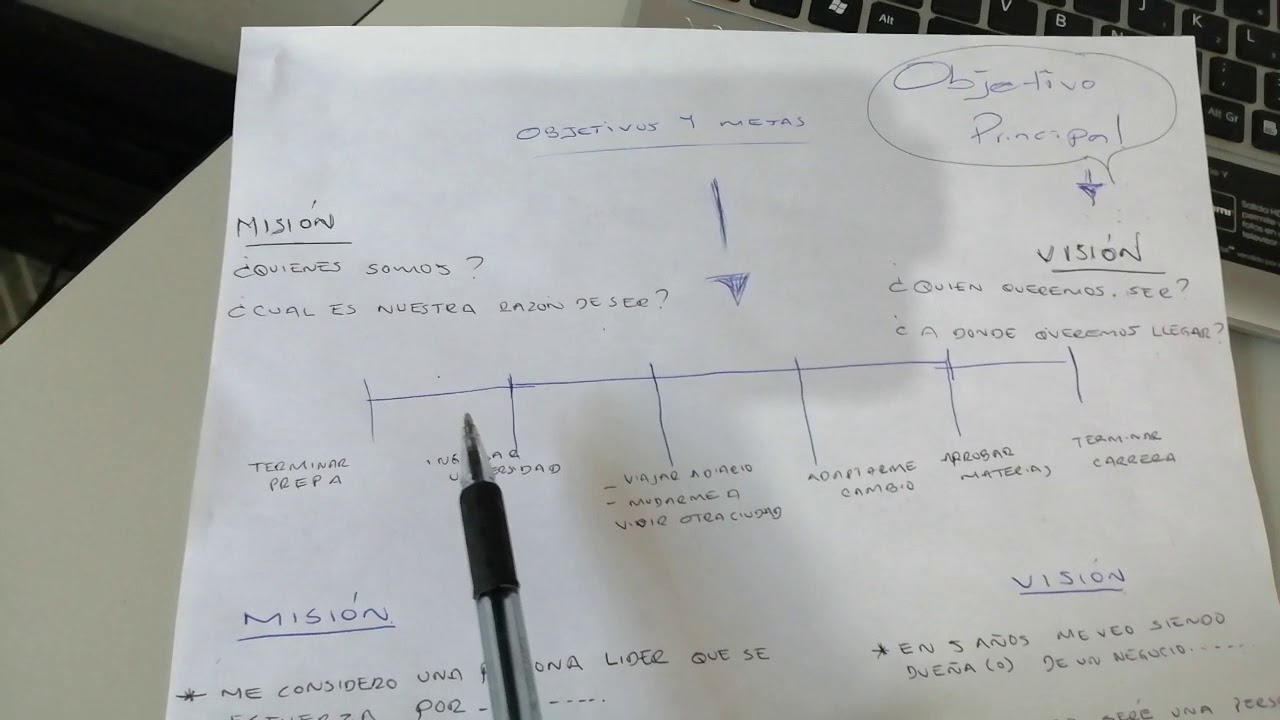 Objetivo
Principal
OBJETIVOS Y METAS
MISIÓN
¿QUIENES SOMOS?
¿CUAL ES NUESTRA RAZON DE SER?
VISIÓN
¿QUIEN QUEREMOS SER?
¿A DONDE QUEREMOS LLEGAR?
TERMINAR
PREPA
- VIAJAR A DIARIO
- MUDARME A
VIVIR OTRA CIUDAD
ADAPTARME
CAMBIO
APROBAR
MATERIAS
TERMINAR
CARRERA
MISIÓN
* ME CONSIDERO UNA LIDER QUE SE
ESFUERZA POR - -----.
VISIÓN
* EN 5 AÑOS ME VEO SIENDO
DUEÑA(O) DE UN NEGOCIO......
SERÉ UNA
Alt
V
B
J
K
L
Alt Gr